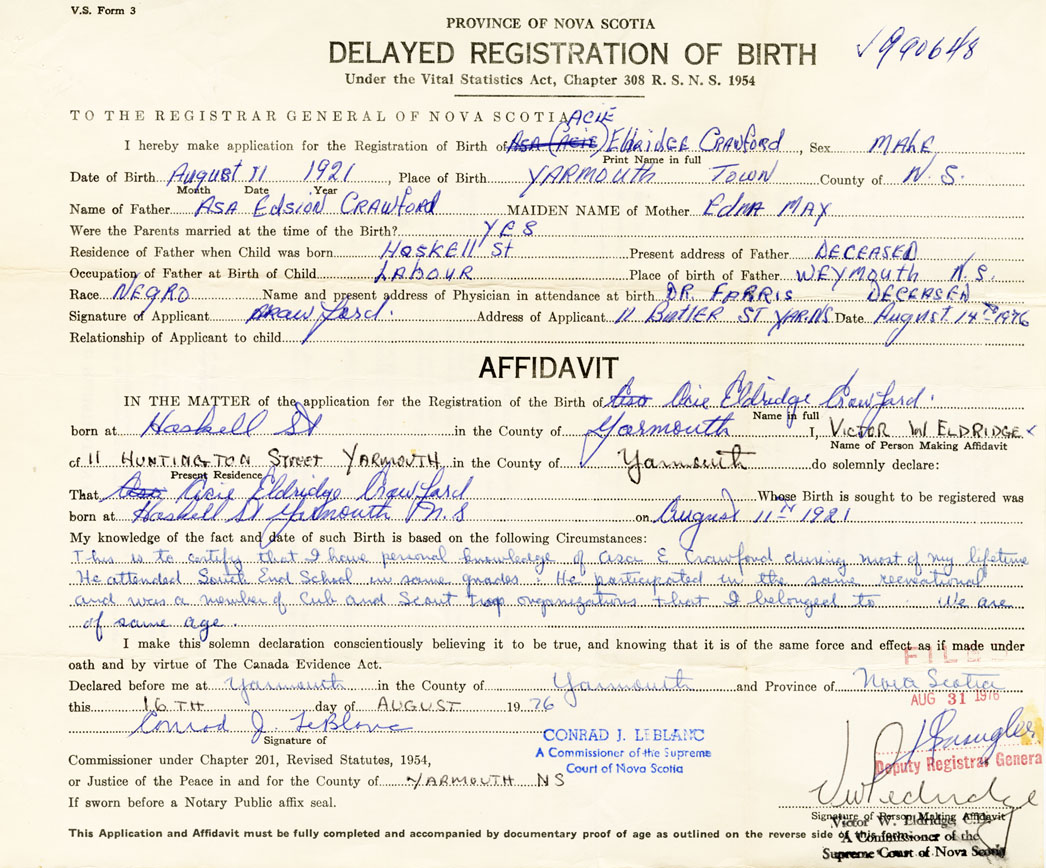 V.S. Form 3
PROVINCE OF NOVA SCOTIA
DELAYED REGISTRATION OF BIRTH
√990648
Under the Vital Statistics Act, Chapter 308 R. S. N. S. 1954
TO THE REGISTRAR GENERAL OF NOVA SCOTIA ACIE
I hereby make application for the Registration of Birth of ASA (ACIE) ELdRIDGE CRAWFORD, Sex MALE
Print Name in full
Date of Birth AUGUST 11 1921, Place of Birth YARMOUTH TOWN County of N.S.
Month Date Year
Name of Father ASA EDSION CRAWFORD MAIDEN NAME of Mother EDNA MAX
Were the Parents married at the time of the Birth? YES
Residence of Father when Child was born HASKELL St Present address of Father DECEASED
Occupation of Father at Birth of Child LABOUR Place of birth of Father WEYMOUTH N.S.
Race NEGRO Name and present address of Physician in attendance at birth DR. FARRIS DECEASED
Signature of Applicant Crawford. Address of Applicant 11 BUTLER ST YAR.NS Date August 14th 1976
Relationship of Applicant to child
AFFIDAVIT
IN THE MATTER of the application for the Registration of the Birth of Asa Acie Eldridge Crawford.
Name in full
born at Haskell St in the County of Yarmouth I, VICTOR W ELDRIDGE
Name of Person Making Affidavit
of 11 HUNTINGTON STREET YARMOUTH in the County of Yarmouth do solemnly declare:
Present Residence
That Asa Acie Eldridge Crawford Whose Birth is sought to be registered was
born at Haskell St Yarmouth N.S on August 11th 1921
My knowledge of the fact and date of such Birth is based on the following Circumstances:
This is to certify that I have personal knowledge of Asa E Crawford during most of my lifetime
He attended South End School in same grades. He participated in the same recreational
and was a member of Cub and Scout Troop organizations that I belonged to We are
of same age.
I make this solemn declaration conscientiously believing it to be true, and knowing that it is of the same force and effect as if made under
oath and by virtue of The Canada Evidence Act.
FILED
Declared before me at Yarmouth in the County of Yarmouth and Province of Nova Scotia
AUG 31 1976
this 16TH day of AUGUST 1976
Conrad J. LeBlanc
Signature of
CONRAD J. LEBLANC
A Commissioner of the Supreme
Court of Nova Scotia
Deputy Registrar General
Commissioner under Chapter 201, Revised Statutes, 1954,
or Justice of the Peace in and for the County of YARMOUTH NS
If sworn before a Notary Public affix seal.
VW Eldridge
Signature of Person Making Affidavit
Victor W. Eldridge,
A Commissioner of the
Supreme Court of Nova Scotia
This Application and Affidavit must be fully completed and accompanied by documentary proof of age as outlined on the reverse side of this form.